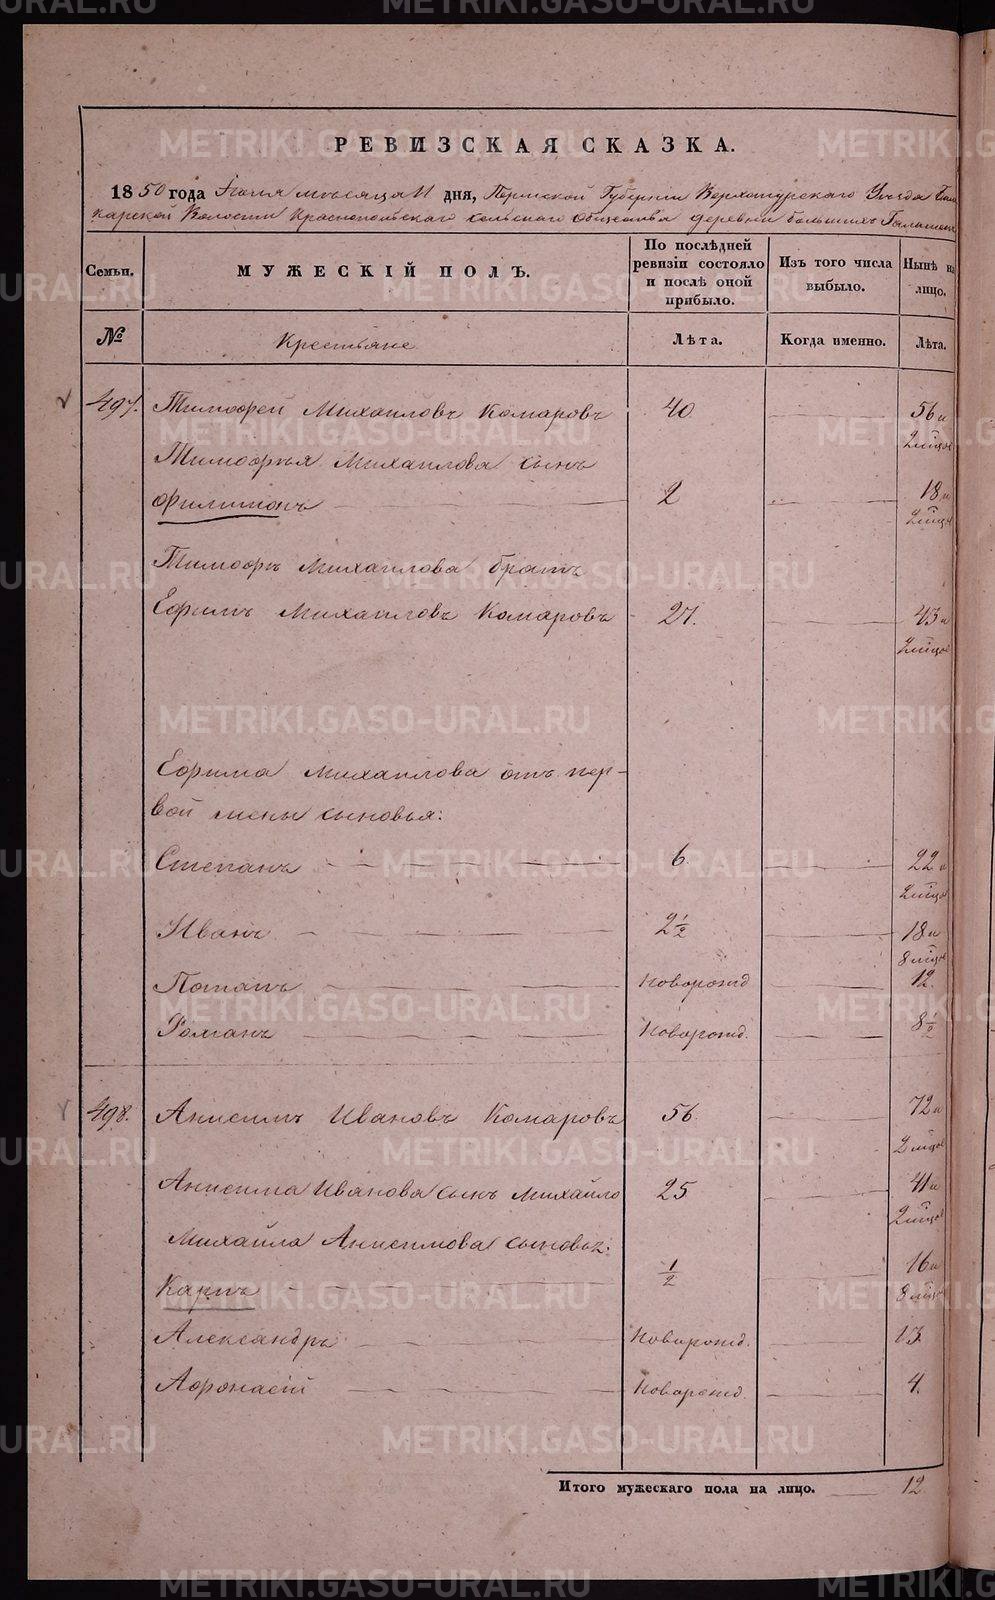 РЕВИЗСКАЯ СКАЗКА.
1850 года Іюня мѣсяца 11 дня, Пермской Губерніи Верхотурскаго Уѣзда
Волости Краснопольскаго сельскаго общества деревни большихъ
Семьи.
МУЖЕСКІЙ ПОЛЪ.
По послѣдней ревизіи состояло и послѣ оной прибыло.
Изъ того числа выбыло.
Нынѣ на лицо.
№
Крестьяне
Лѣта.
Когда именно.
Лѣта.
497. Тимофей Михаиловъ Комаровъ 40 56 и
2 мѣсяц
Тимофѣя Михаилова сынъ
Филимонъ 2 18 и
2 мѣсяц
Тимофѣя Михаилова братъ
Ефимъ Михаиловъ Комаровъ 27. 43 и
2 мѣсяц
Ефима Михаилова отъ пер-
вой жены сыновья:
Степанъ 6. 22 и
2 мѣсяц
Иванъ 2 1/2 18 и
8 мѣсяц
Потапъ Новорожд 12.
Романъ Новорожд. 8 1/2
498. Анисимъ Ивановъ Комаровъ 56. 72 и
2 мѣсяц
Анисима Иванова сынъ Михайло 25 41 и
2 мѣсяц
Михайла Анисимова сыновья:
Карпъ 1/2 16 и
8 мѣсяц
Александръ Новорожд. 13.
Афонасій Новорожд. 4.
Итого мужескаго пола на лицо. 12
METRIKI.GASO-URAL.RU